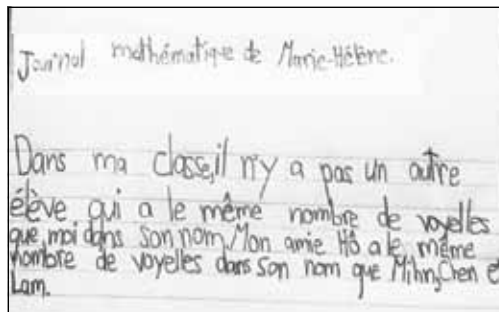 Journal mathématique de Marie-Hélène.
Dans ma classe, il n'y a pas un autre
élève qui a le même nombre de voyelles
que moi dans son nom. Mon amie Hô a le même
nombre de voyelles dans son nom que Mihn, Chen et
Lam.